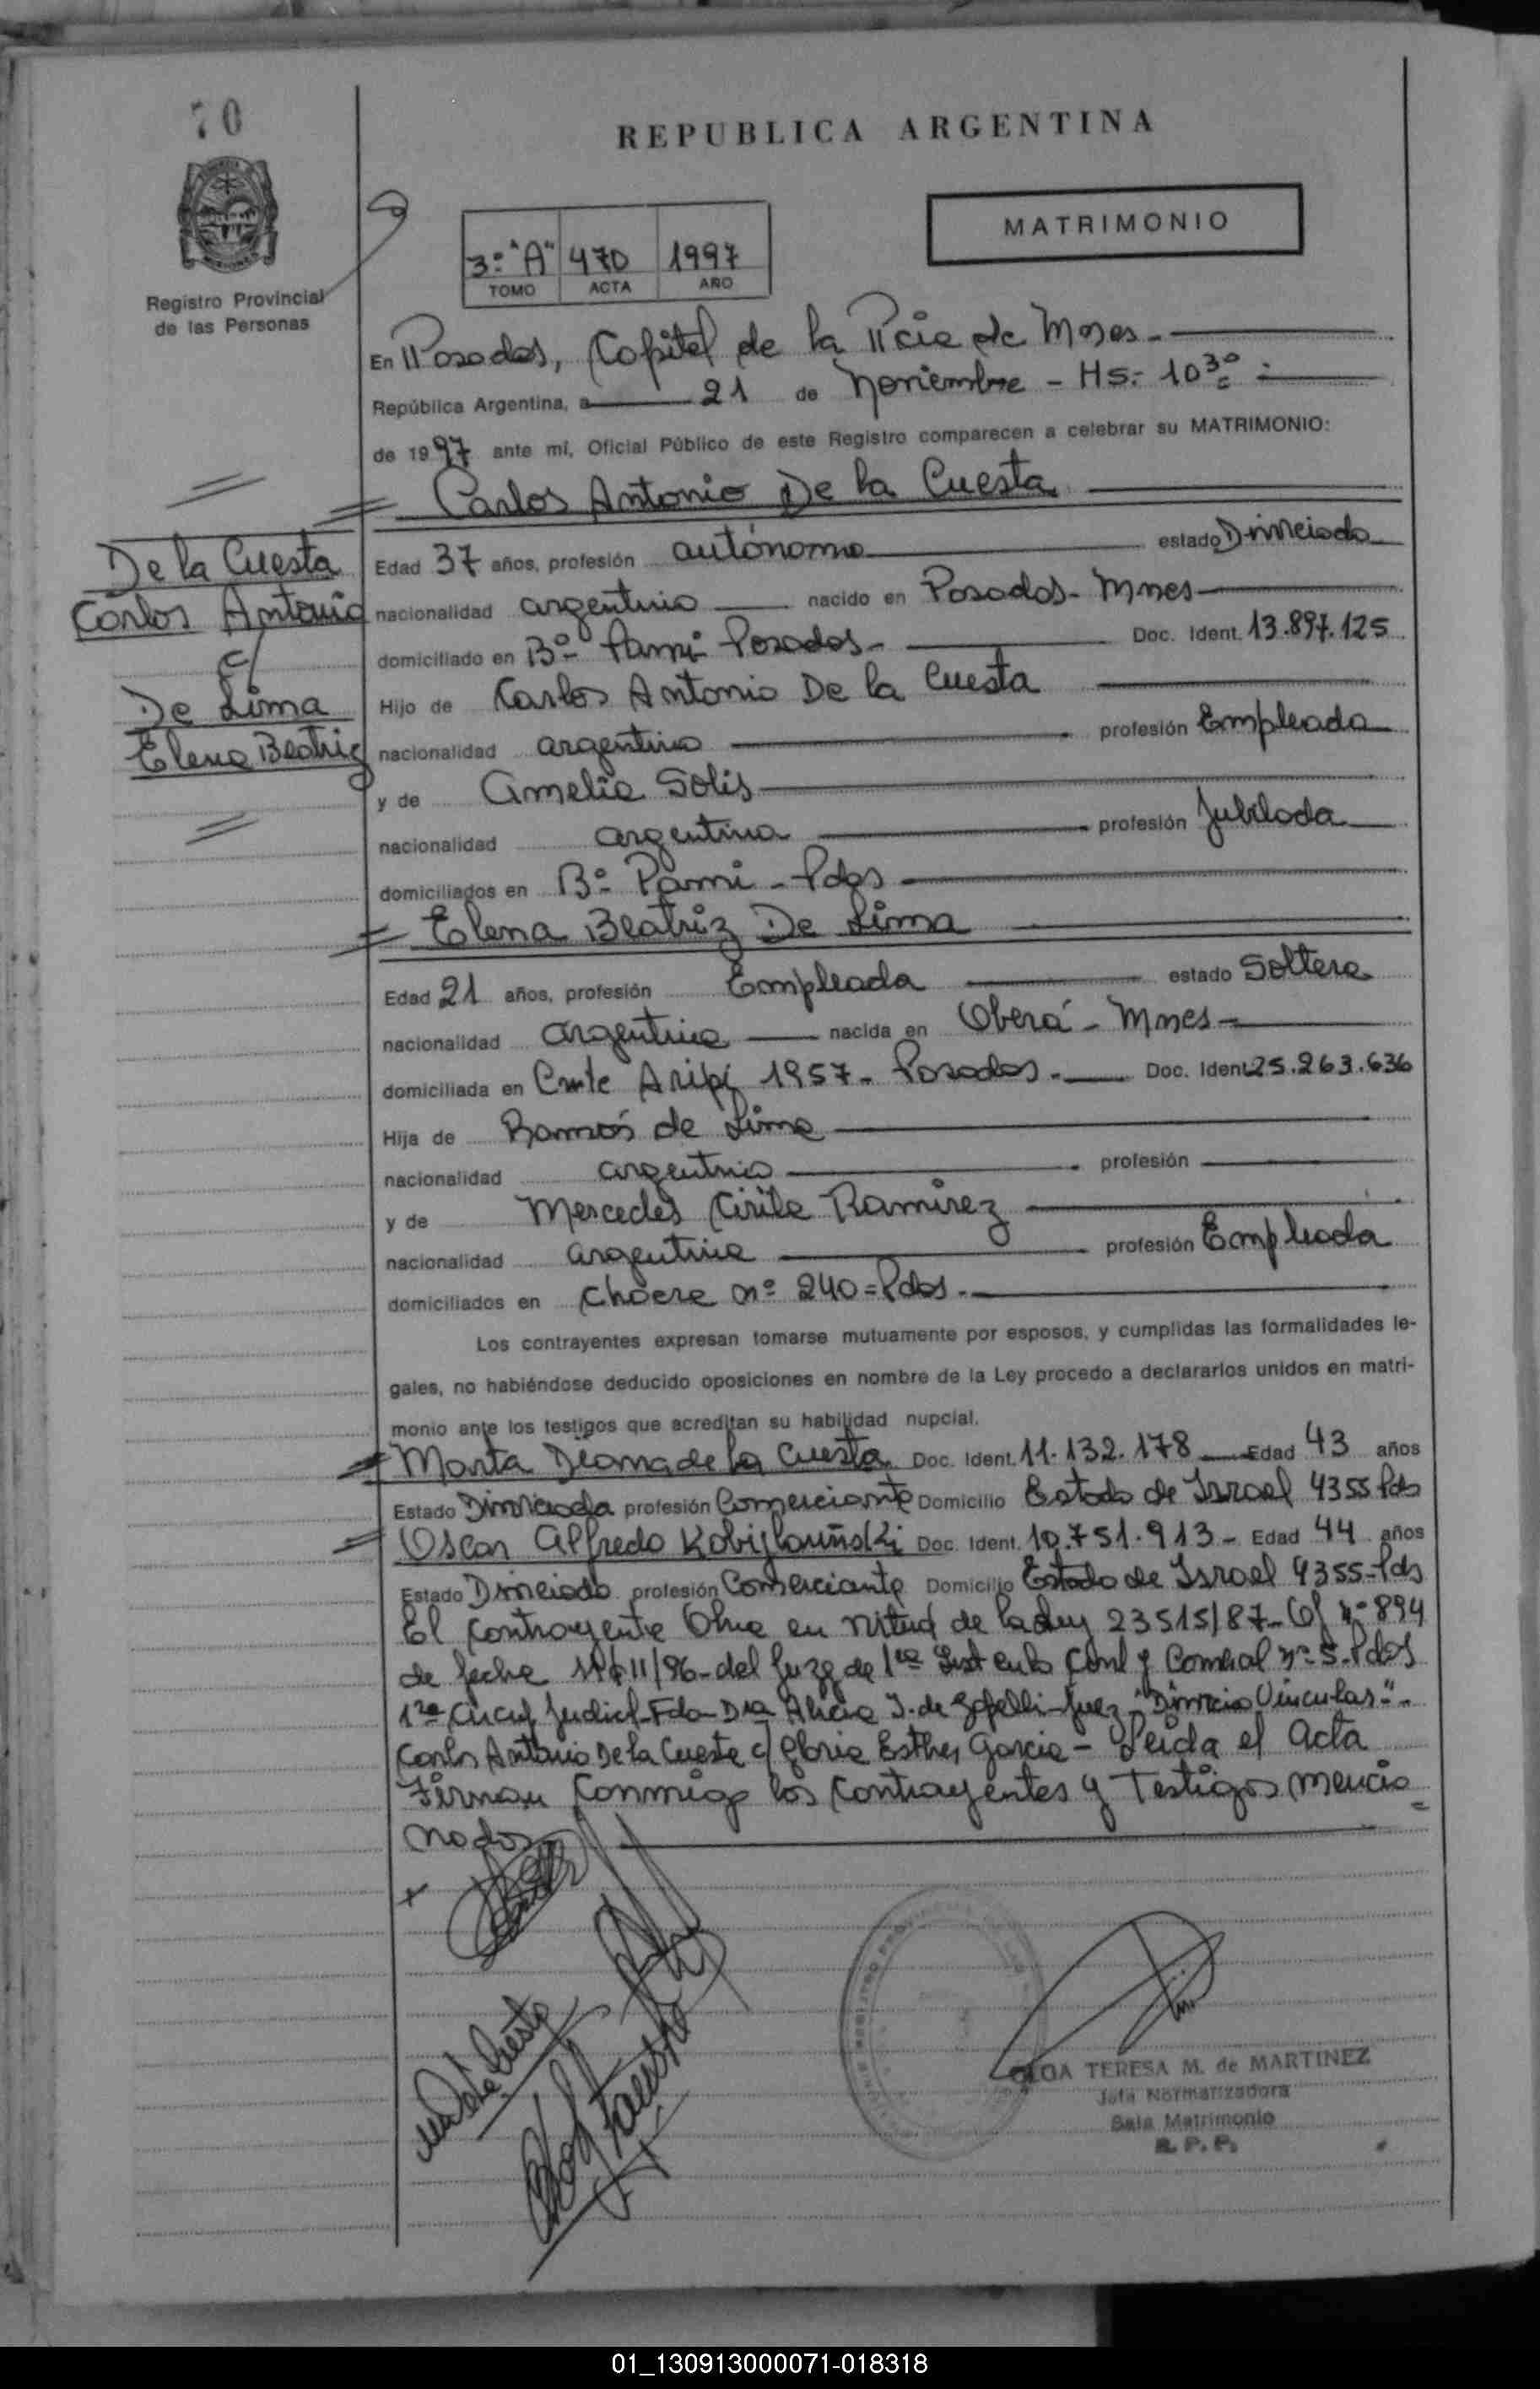 70
REPUBLICA ARGENTINA
MATRIMONIO
3º "A" 470 1997
TOMO ACTA AÑO
Registro Provincial
de las Personas
En Posadas, Capital de la Pcia de Mnes.-
República Argentina, a 21 de Noviembre - Hs:- 10 30
de 1997 ante mí, Oficial Público de este Registro comparecen a celebrar su MATRIMONIO:
Carlos Antonio De la Cuesta
De la Cuesta
Carlos Antonio
c/
De Lima
Elena Beatriz
Edad 37 años, profesión autónomo estado Divorciado
nacionalidad argentino nacido en Posadas- Mnes-
domiciliado en Bº Pami Posadas- Doc. Ident. 13.897.125
Hijo de Carlos Antonio De la Cuesta
nacionalidad argentino profesión Empleado
y de Amelia Solis
nacionalidad argentina profesión Jubilada
domiciliados en Bº Pami - Pdas
Elena Beatriz De Lima
Edad 21 años, profesión Empleada estado Soltera
nacionalidad Argentina nacida en Oberá - Mnes-
domiciliada en 1957- Posadas.- Doc. Ident. 25.263.636
Hija de de Lima
nacionalidad argentino profesión
y de Mercedes Cirila Ramirez
nacionalidad argentina profesión Empleada
domiciliados en nº 240=Pdas.-
Los contrayentes expresan tomarse mutuamente por esposos, y cumplidas las formalidades le-
gales, no habiéndose deducido oposiciones en nombre de la Ley procedo a declararlos unidos en matri-
monio ante los testigos que acreditan su habilidad nupcial.
Marta de la Cuesta Doc. Ident. 11.132.178 Edad 43 años
Estado Divorciada profesión Comerciante Domicilio Estado de Israel 4355 Pds
Oscar Alfredo Doc. Ident. 10.751.913- Edad 44 años
Estado Divorciado profesión Comerciante Domicilio Estado de Israel 4355-Pds
El Contrayente Obra en virtud de la Ley 23515/87- Of nº 894
de fecha 11/96- del Juzg de 1ra Inst en lo Civil y Comercial nº 5-Pdas
1ra Judicial-Fdo- Dra Alicia J. de Juez "Divorcio Vincular"-
Carlos Antonio De la Cuesta c/ Gloria Esther Garcia- Leida el Acta
Firman Conmigo los Contrayentes y Testigos mencio=
nados
OLGA TERESA M. de MARTINEZ
Jefa Normatizadora
Sala Matrimonio
R. P. P.
01_130913000071-018318